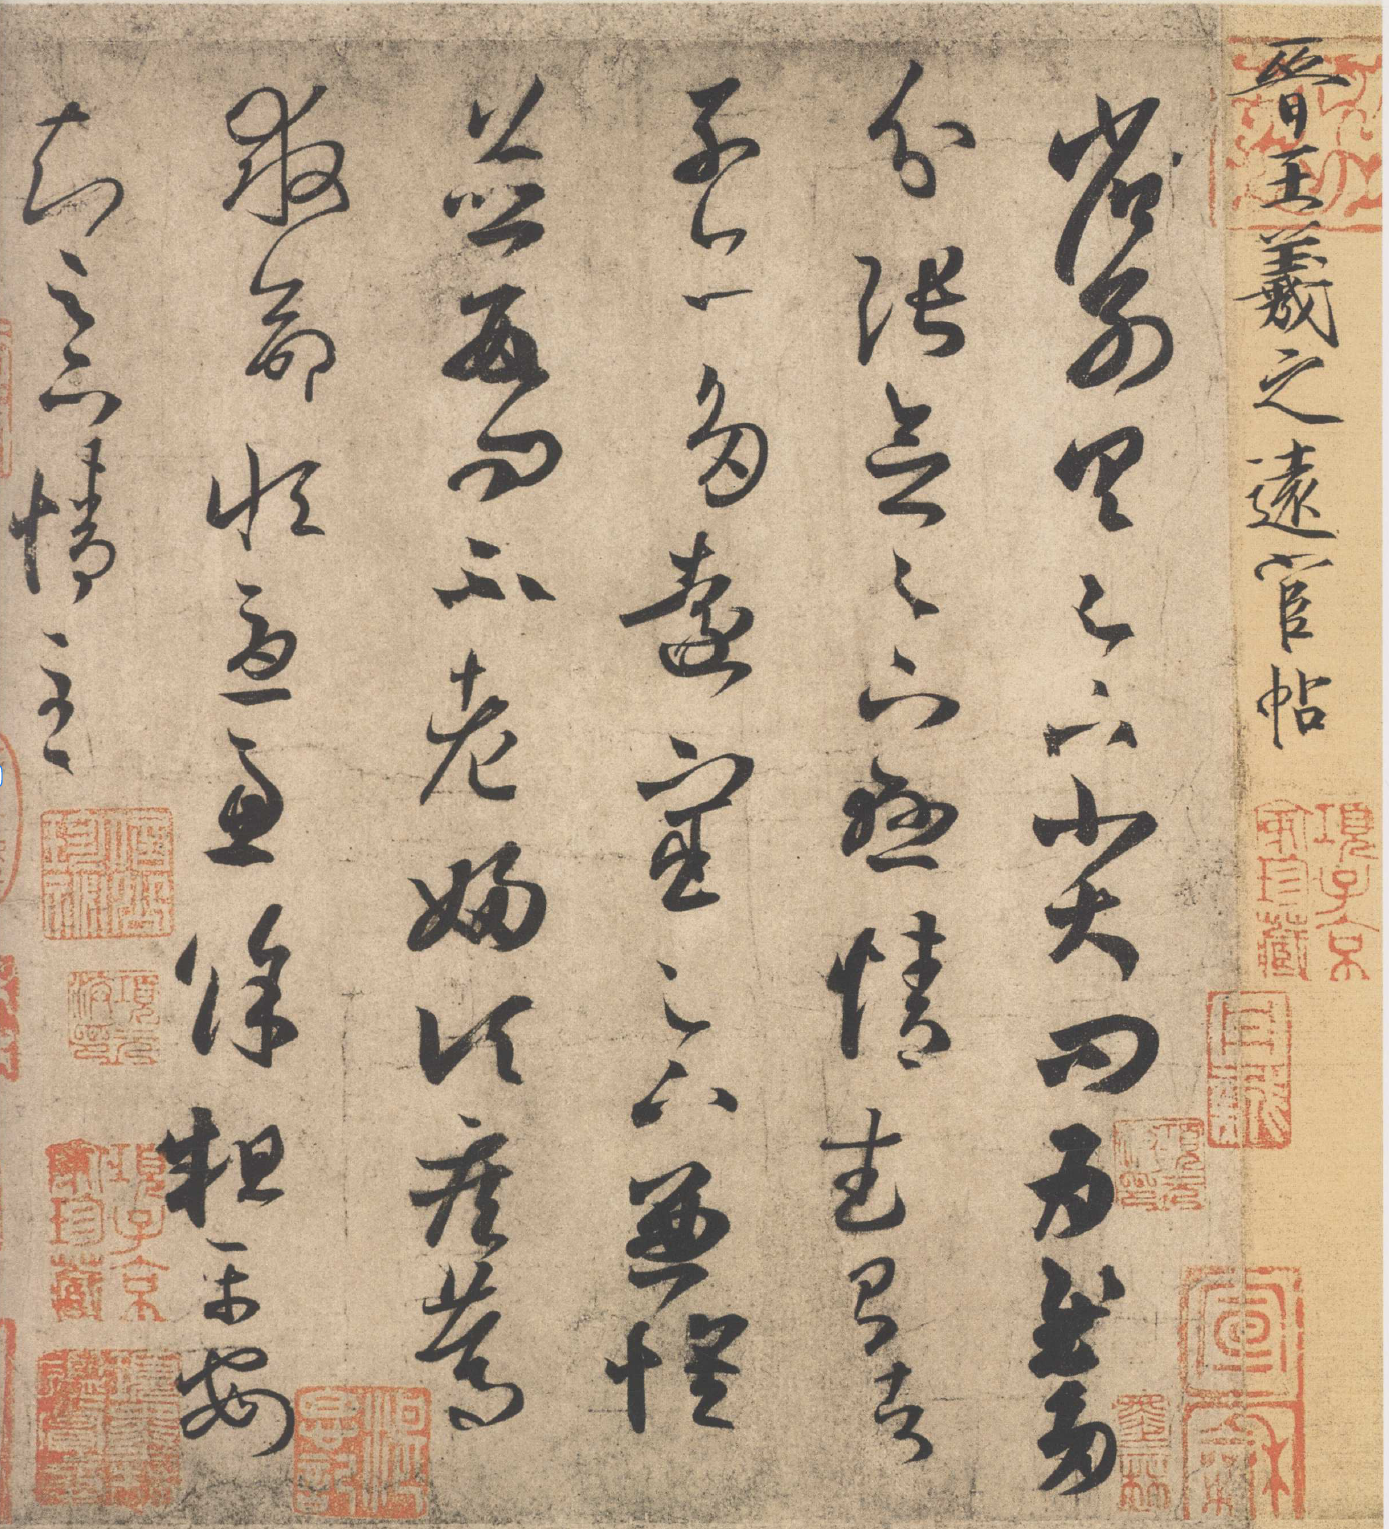 晉王羲之遠宦帖
省別具足下小大問為慰多
分張念足下懸情武昌諸
子亦多遠宦足下兼懷
並數問不老婦頃疾篤
救命恒憂慮餘粗平安
知足下情至
項子京家珍藏
項元汴印
項元汴印
項子京家珍藏